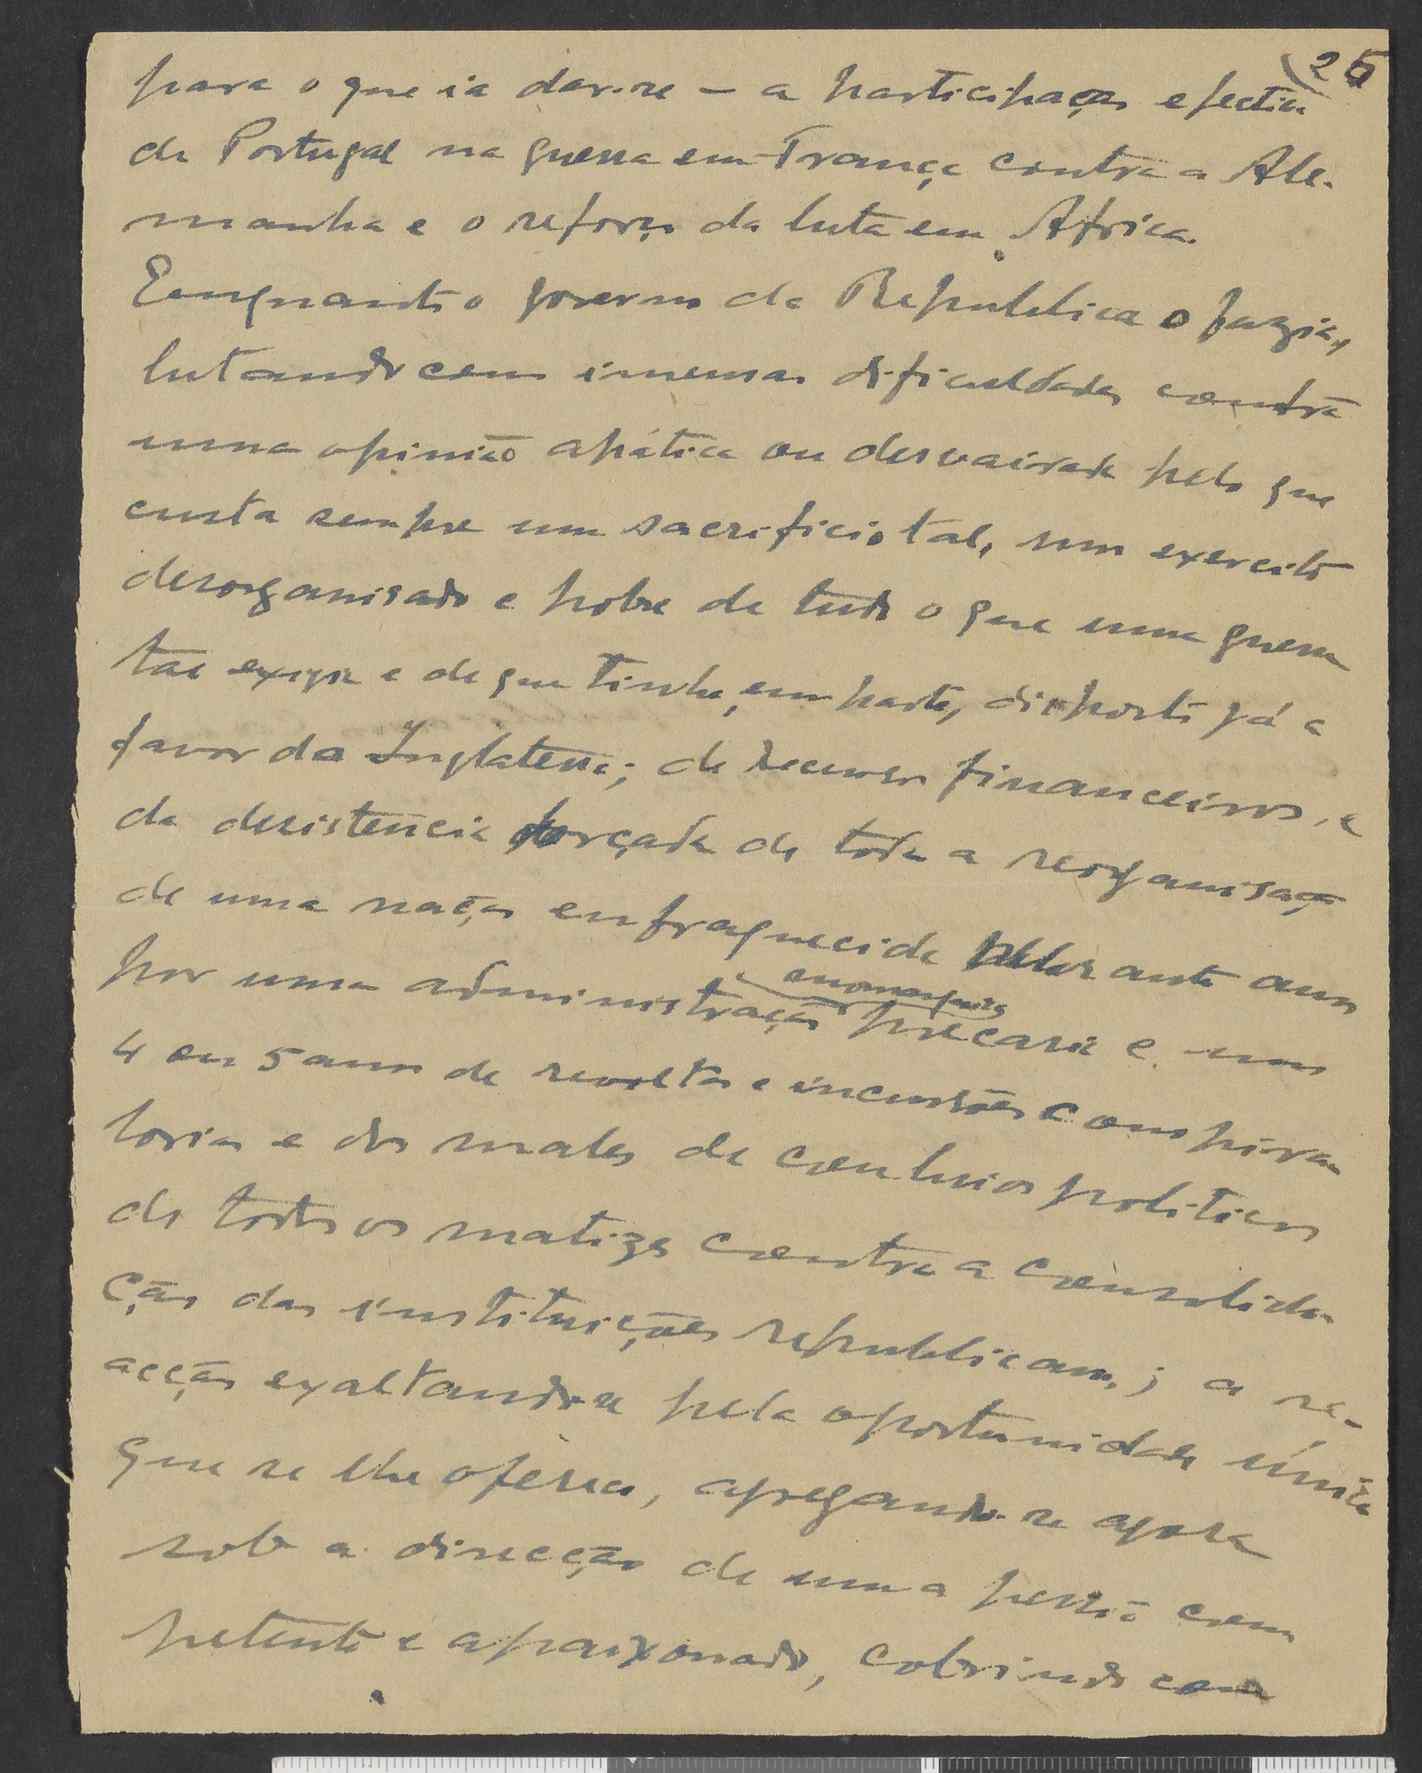 25
para o que ia dar-se – a participação efectiva
de Portugal na guerra em França contra a Ale-
manha e o reforço da luta em Africa.
Emquanto o governo da Republica o fazia,
lutando com imensas dificuldades contra
uma opinião apática ou desvairada pelo que
custa sempre um sacrificio tal, num exercito
desorganisado e pobre de tudo o que uma guerra
tal exige e de que tinha, em parte, disposto já a
favor da Inglaterra; de recursos financeiros e
da desistencia forçada de toda a reorganisação
de uma nação enfraquecida durante anos
por uma administração precaria e uns
4 ou 5 anos de revoltas e incursões conspira-
torias e dos males de conluios politicos
de todos os matizes contra a consolida-
ção das instituições republicanas; a re-
acção exaltando-se pela oportunidade única
que se lhe oferecia, apregando-se agora
sob a direcção de uma com
petente e apaixonado, cobrindo com